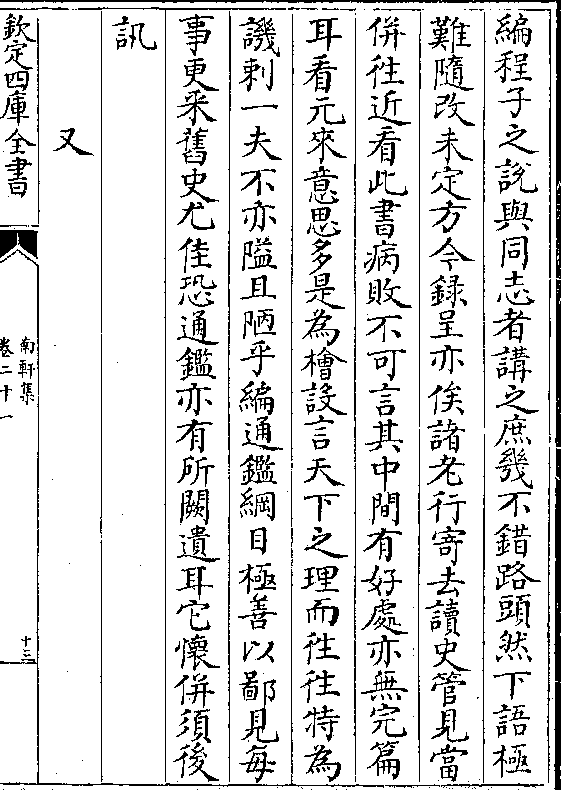 編程子之説與同志者講之庶幾不錯路頭然下語極
難隨改未定方令録呈亦俟諸老行寄去讀史管見當
併徃近看此書病敗不可言其中間有好處亦無完篇
耳看元來意思多是為檜設言天下之理而徃徃特為
譏刺一夫不亦隘且陋乎編通鑑綱目極善以鄙見每
事更采舊史尤佳恐通鑑亦有所闕遺耳它懷併須後
訊
又
欽定四庫全書
南軒集
卷二十一
十三